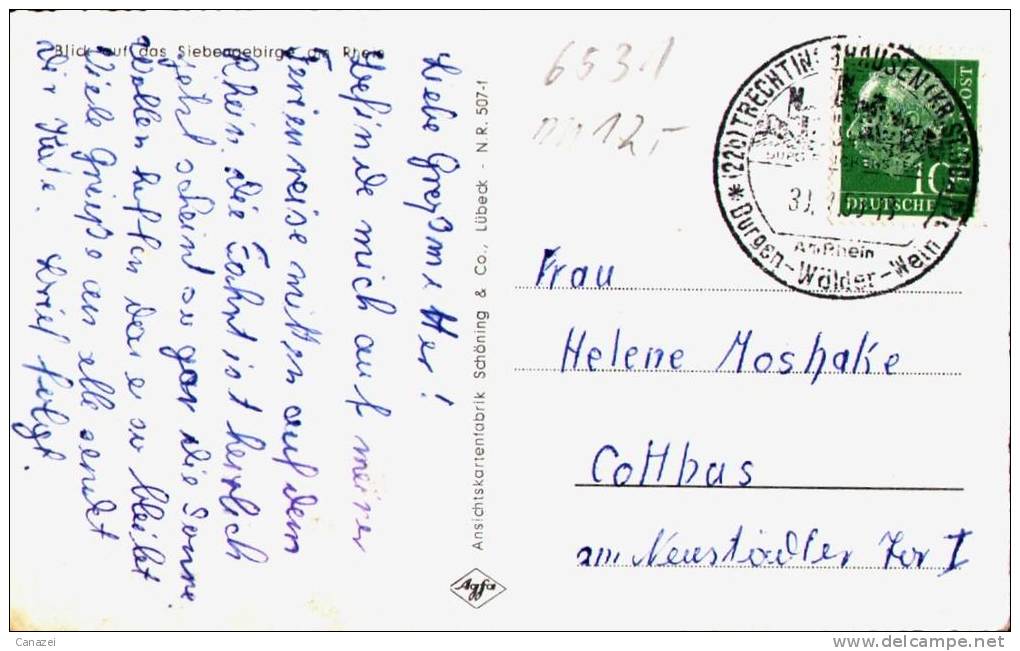 Blick auf das Siebengebirge am Rhein
Liebe Großmutter!
Befinde mich auf meiner
Ferienreise mitten auf dem
Rhein. die Fahrt ist herrlich
jetzt scheint so gar die Sonne.
Wollen hoffen das es so bleibt
Viele Grüße an alle sendet
Dir
Brief folgt.
Ansichtskartenfabrik Schöning & Co., Lübeck - N.R. 507-1
Agfa
6531
12,-
(22b) TRECHTINGSHAUSEN (KR.
Am Rhein
Burgen-Wälder-Wein
10
DEUTSCHE
POST
Frau
Helene Moshake
Cottbus
am Neustädter Tor I
Canazei
www.delcampe.net